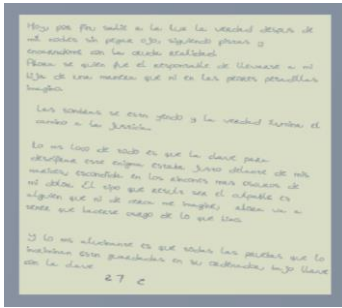 Hoy, por fin, salió a la luz la verdad despues de
mil noches sin pegar ojo, siguiendo pistas y
con la cruda realidad.
Ahora se quien fue el responsable de llevarse a mi
hija de una manera que ni en las peores pesadillas
imagino.
Las sombras se estan yendo y la verdad ilumina el
camino a la justicia.
Lo mas loco de todo es que la clave para
descifrar este enigma estaba justo delante de mis
narices, escondida en los rincones mas oscuros de
mi dolor. El tipo que resulta ser el culpable es
alguien que ni de me imagine, ahora va a
tener que hacerse cargo de lo que hizo.
Y lo mas alucinante es que todas las pruebas que lo
estan guardadas en su ordenador, bajo llave
con la clave
27 2